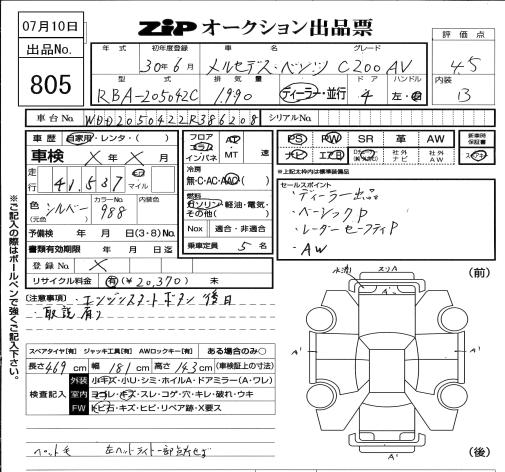 07月10日
ZIP オークション出品票
出品No.
805
評価点
4.5
内装
B
年式 初年度登録 車名 グレード
30年6月 メルセデス・ベンツ C200 AV
型式 排気量 ドア ハンドル
RBA-205042C 1,990 ディーラー・並行 4 左・右
車台No. WDD2050422R386208 シリアルNo.
車歴 自家用・レンタ・( )
車検 X年X月
走行 41,537 km マイル
色(元色) シルバー カラーNo. 988 内装色
予備検 年 月 日(3・8)No.
書類有効期限 年 月 日迄
登録No. X
リサイクル料金 有(¥20,370) 未
フロア コラム インパネ AT MT 速
冷房 無・C・AC・AAC( )
燃料 ガソリン・軽油・電気・その他( )
Nox 適合・非適合
乗車定員 5名
PS PW SR 革 AW 新車時保証書
ナビ エアB 社外ナビ 社外AW
※上記太枠内は標準装備です。
セールスポイント
・ディーラー出品
・ベーシックP
・レーダーセーフティP
・AW
[注意事項]・エンジンスタートボタン後日
・取説有り
スペアタイヤ[有] ジャッキ工具[有] AWロックキー[有] ある場合のみ○
長さ469cm 幅181cm 高さ143cm (車検証上の寸法)
検査記入 外装 小キズ・小U・シミ・ホイルA・ドアミラー(A・ワレ)
室内 ヨゴレ・キズ・スレ・コゲ・穴・キレ・破れ・ウキ
FW 飛石・キズ・ヒビ・リペア跡・X要ス
ペット毛 左ヘッドライト一部
※ご記入の際はボールペンで強くご記入下さい。
(前)
スリA
A'
A'
A'
A'
(後)